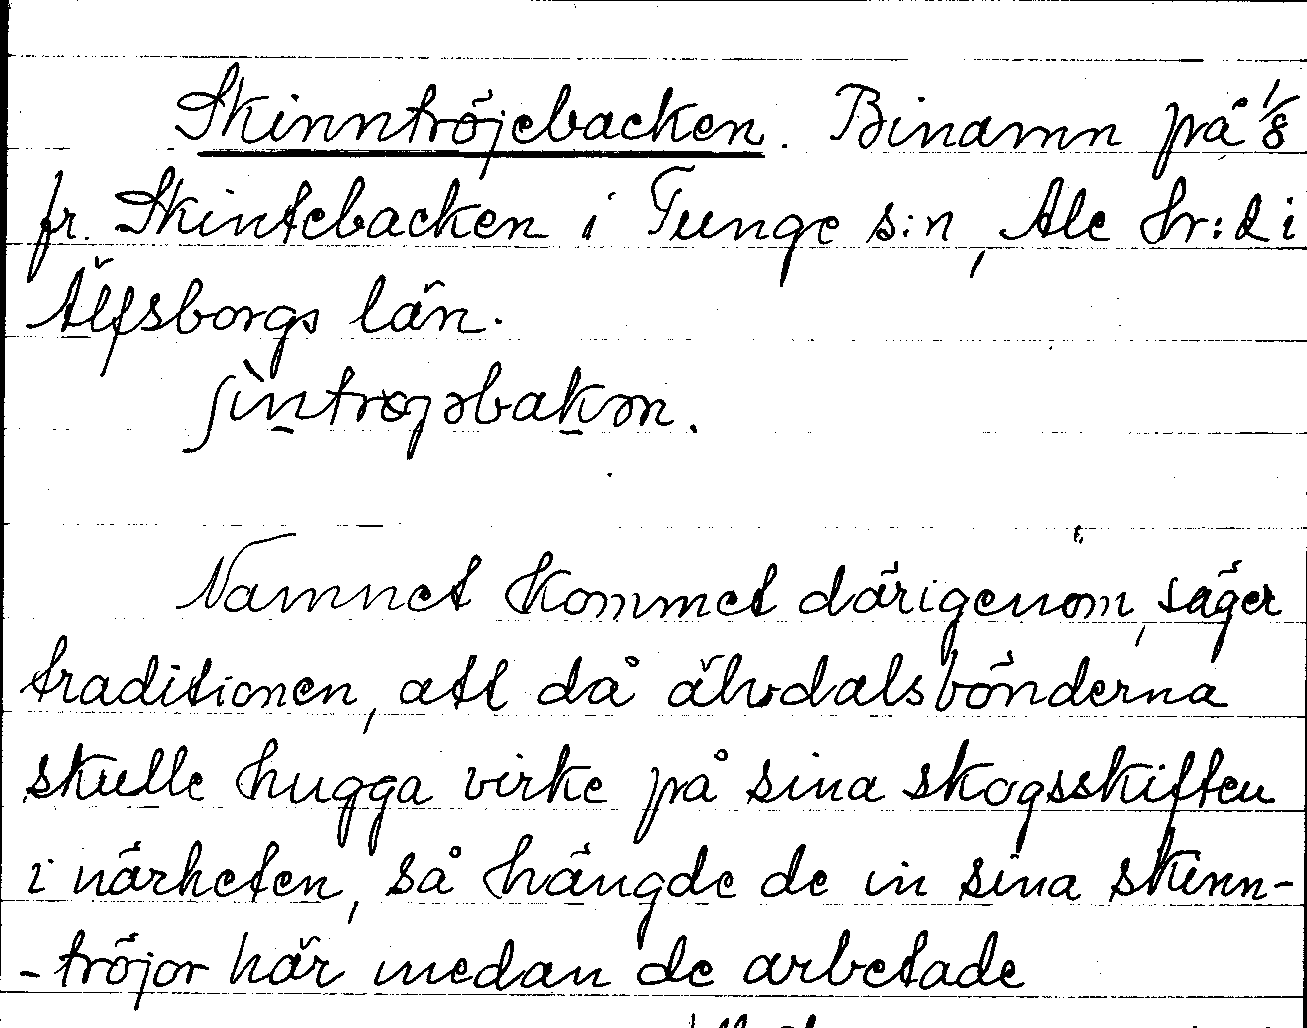 Skinntröjebacken. Binamn på 1/8
fr. Skintebacken i Tunge s:n, Ale hr:d i
Älfsborgs län.
ʃìntrøjəbakən.
Namnet kommet därigenom, säger
traditionen, att då älvdalsbönderna
skulle hugga virke på sina skogsskiften
i närheten, så hängde de in sina skinn-
-tröjor här medan de arbetade